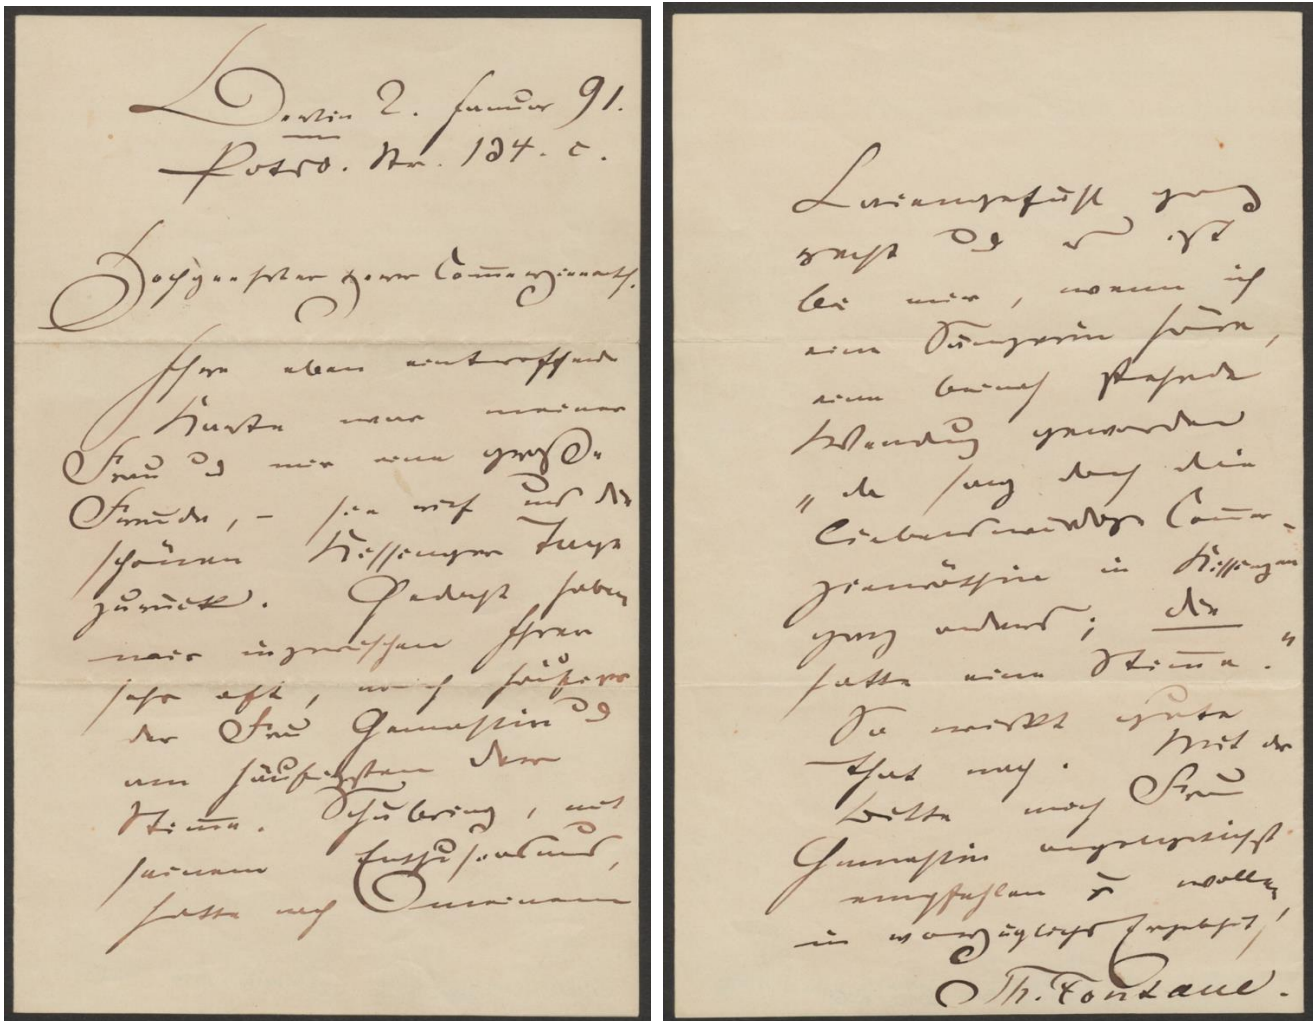 Berlin 2. Januar 91.
Potsd. Str. 134. c.
Hochgeehrter Herr Commerzienrath.
Ihre eben eintreffende
Karte war meiner
Frau und mir eine große
Freude, – sie rief uns die
schönen Kissinger Tage
zurück. Gedacht haben
wir inzwischen Ihrer
sehr oft, noch häufiger
der Frau Gemahlin und
am häufigsten der
Stimme. Schubring, mit
seinem Enthusiasmus,
hatte nach meinem
Laiengefühl ganz
recht und es ist
bei mir, wenn ich
eine Sängerin höre,
eine beinah stehende
Wendung geworden
„da sang doch die
liebenswürdige Commer-
zienräthin in Kissingen
ganz anders; die
hatte eine Stimme.“
So wirkt gute
That nach. Mit der
Bitte mich Frau
Gemahlin angelegentlichst
empfehlen zu wollen,
in vorzüglicher Ergebenheit
Th. Fontane.